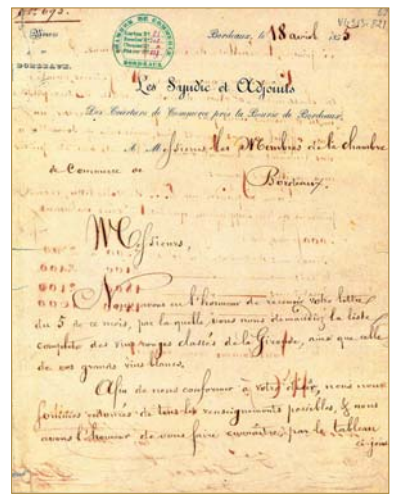 N° 692.
Bourse
de
BORDEAUX.
CHAMBRE DE COMMERCE
BORDEAUX
Bordeaux, le 18 avril 1855
Les Syndic et Adjoints
Des Courtiers de Commerce près la Bourse de Bordeaux,
A Messieurs les Membres de la chambre
de Commerce de
Bordeaux.
Messieurs,
Nous avons eu l'honneur de recevoir votre lettre
du 5 de ce mois, par laquelle vous nous demandiez la liste
complète des vins rouges classés de la Gironde, ainsi que celle
de nos grands vins blancs.
Afin de nous conformer à votre désir, nous nous
sommes entourés de tous les renseignements possibles, & nous
avons l'honneur de vous faire connaître, par le tableau
ci-joint